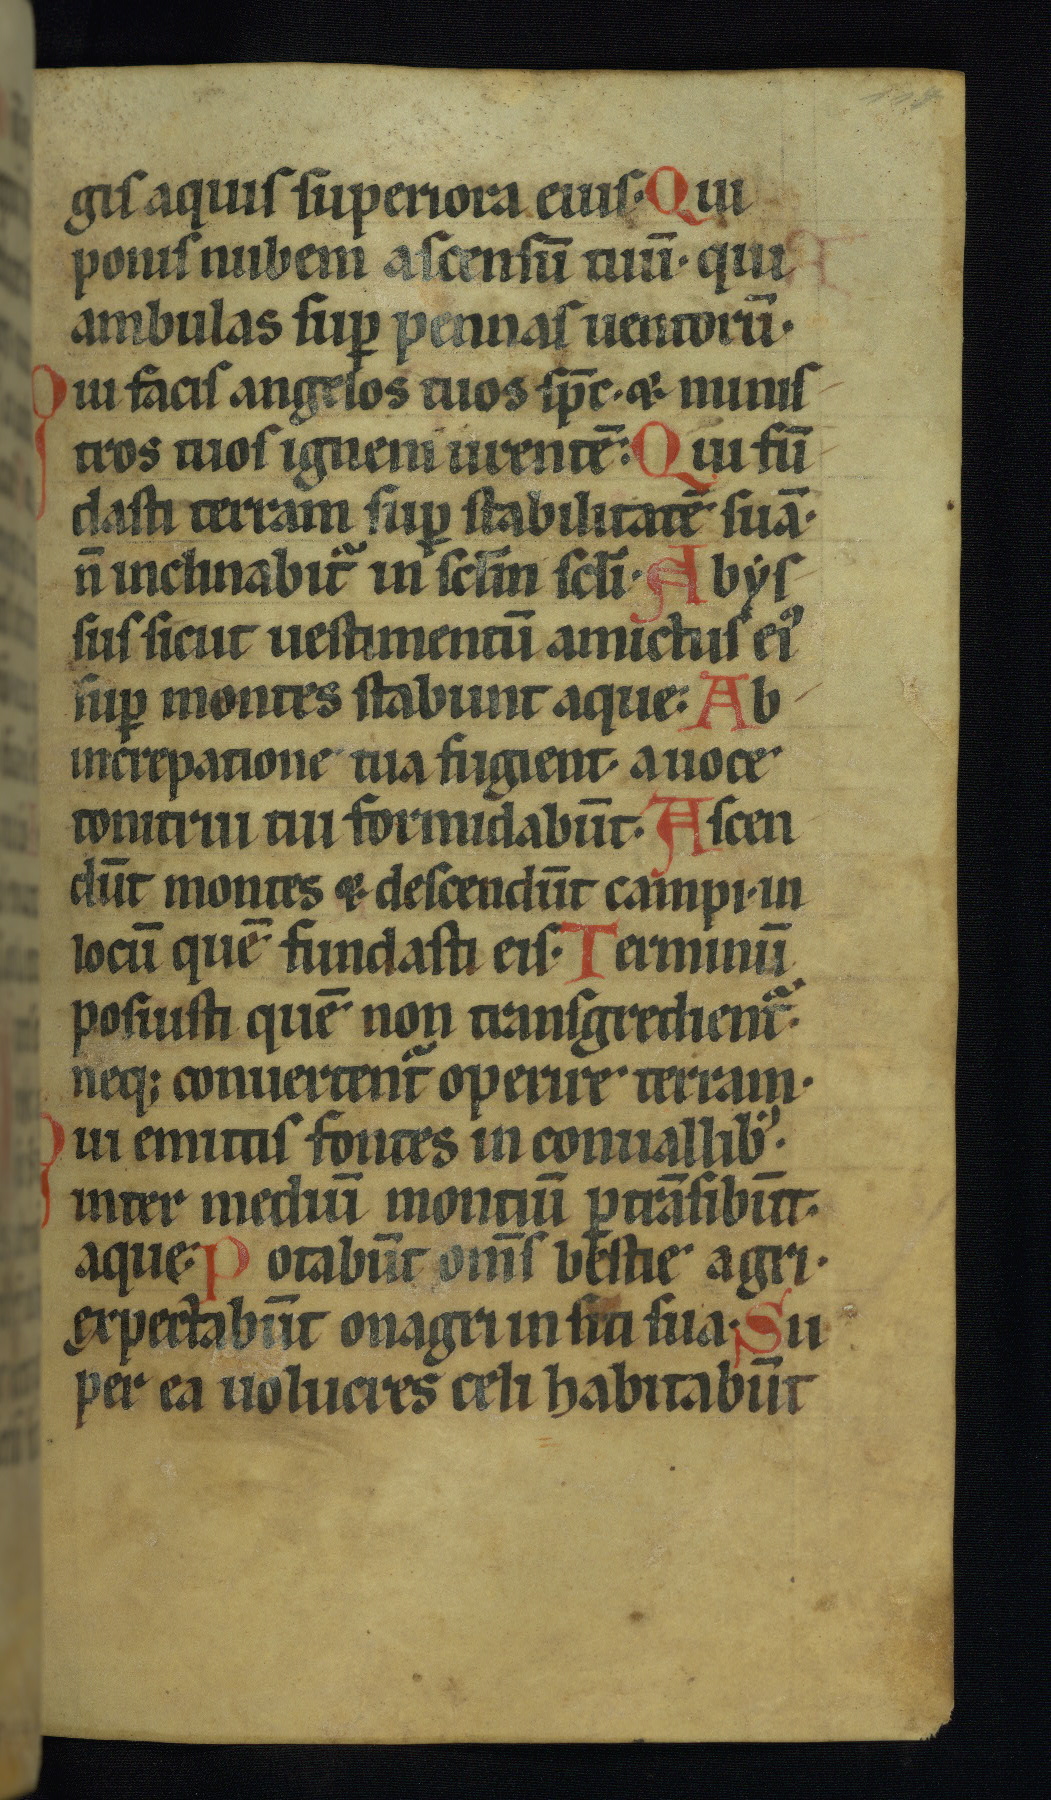 gis aquis superiora eius· Qui
ponis nubem ascensū tuū· qui
ambulas suꝑ pennas uentorū·
Qui facis angelos tuos sp̄c· ⁊ minis
tros tuos ignem urentē: Qui fū
dasti terram suꝑ stabilitatē suā·
n̄ inclinabit᷑ in sclm̄ scli̅· Abẏs
sus sicut uestimentū amictus eiꝰ
suꝑ montes stabunt aque: Ab
increpatione tua fugient· a uoce
tonitrui tui formidabūt· Ascen
dūt montes ⁊ descendūt campi· in
locū quē fundasti eis· Terminū
posuisti quē non transgredient᷑·
neq; conuertent᷑ operire terram·
Qui emittis fontes in conuallibꝰ·
inter mediū montiū ꝑtrāsibūt·
aque: Potabūt om̄s bestie agri·
expectabūt onagri in siti sua· Su
per ea uolucres celi habitabūt